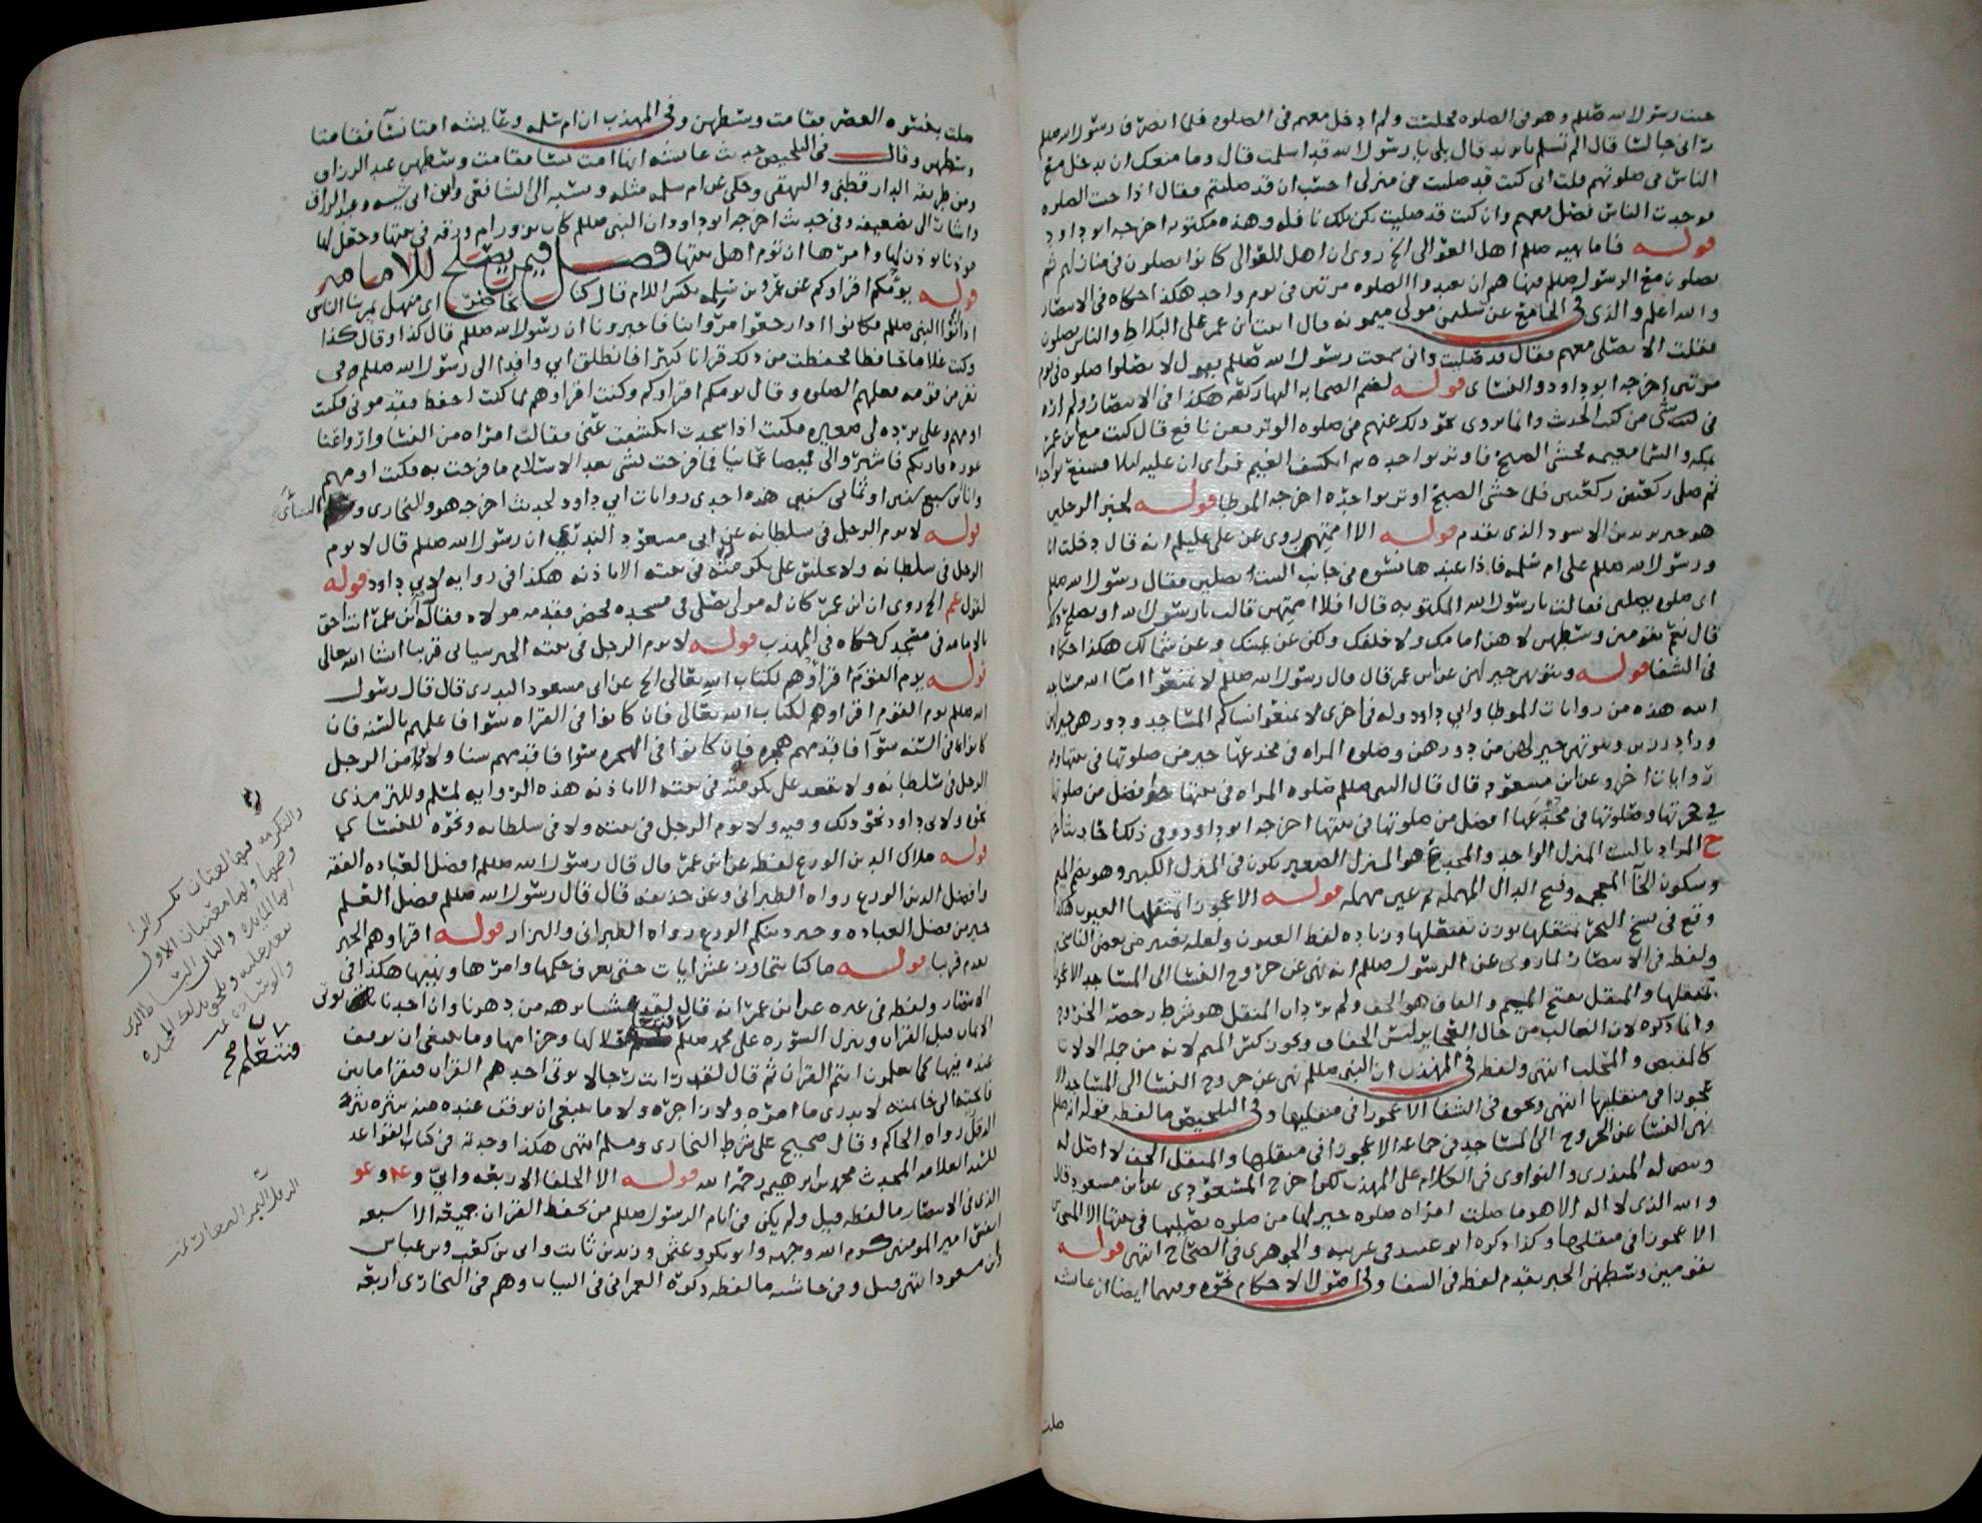 جئت رسول الله صللم وهو في الصلوه فجلست ولم ادخل معهم في الصلوه فلما انصرف رسول الله صللم
رآني جالسا قال الم تسلم يا يزيد قال بلى يا رسول الله قد اسلمت قال وما منعك ان تدخل مع
الناس في صلوتهم قلت اني كنت قد صليت في منزلي احسب ان قد صليتم فقال اذا جئت الصلوه
فوجدت الناس فصل معهم وان كنت قد صليت تكن تلك نافله وهذه مكتوبه اخرجه ابو داود
قوله فما نهيه صللم اهل العوالي الخ روى ان اهل العوالي كانوا يصلون في منازلهم ثم
يصلون مع الرسول صللم فنهاهم ان يعيدوا الصلوه مرتين في يوم واحد هكذا حكاه في الانتصار
والله اعلم والذي في الجامع عن سليمن مولى ميمونه قال اتيت ابن عمر على البلاط والناس يصلون
فقلت الا تصلي معهم فقال قد صليت واني سمعت رسول الله صللم يقول لا تصلوا صلوه في يوم
مرتين اخرجه ابو داود والنسائي قوله لفعل الصحابه اليها ركعه هكذا في الانتصار ولم اره
في شي من كتب الحديث وانما يروى نحو ذلك عنهم في صلوه الوتر فعن نافع قال كنت مع ابن عمر
بمكه والسما مغيمه فخشي الصبح فاوتر بواحده ثم انكشف الغيم فراى ان عليه ليلا فشفع بواحده
ثم صلى ركعتين ركعتين فلما خشي الصبح اوتر بواحده اخرجه الموطا قوله لخبر الرجلين
هو خبر يزيد بن الاسود الذي تقدم قوله الا اممتهن روى عن علي عليلم انه قال دخلت انا
ورسول الله صللم على ام سلمه فاذا عندها نسوه في جانب البيت يصلين فقال رسول الله صللم
اي صلوه يصلين فقالت يا رسول الله المكتوبه قال افلا اممتهن قالت يا رسول الله او يصلح ذلك
قال نعم تقومين وسطهن لا هن امامك ولا خلفك ولكن عن يمينك وعن شمالك هكذا حكاه
في الشفا قوله وبيوتهن خير لهن عن ابن عمر قال قال رسول الله صللم لا تمنعوا اماء الله مساجد
الله هذه من روايات الموطا وابي داود وله في اخرى لا تمنعوا نساكم المساجد ودورهن خير لهن
وبيوتهن خير لهن من دورهن وصلوه المراه في مخدعها خير من صلوتها في بيتها وله
روايات اخر وعن ابن مسعود قال قال النبي صللم صلوه المراه في بيتها افضل من صلوتها
في حجرتها وصلوتها في مخدعها افضل من صلوتها في بيتها اخرجه ابو داود وفي ذلك احاديث اخر
ح المراد بالبيت المنزل الواحد والمخدع هو المنزل الصغير يكون في المنزل الكبير وهو بضم الميم
وسكون الخآ المعجمه وفتح الدال المهمله ثم عين مهمله قوله الا عجوز في منقلها العيون هكذا
وقع في نسخ البحر بمنقلها بدون تفتعلها وزياده لفظ العيون ولعله تغيير من بعض الناسخين
ولفظه في الانتصار لما روى عن الرسول صللم انه نهى عن خروج النسا الى المساجد الا عجوزا
بمنقلها والمنقل بفتح الميم والقاف هو الخف ولم يرد ان المنقل هو شرط رخصه الخروج
وانما ذكره لان الغالب من حال العجايز لبس الخفاف ويجوز كسر الميم لانه من جمله الالات
كالمقبض والمحلب انتهى ولفظه في المهذب ان النبي صللم نهى عن خروج النسا الى المساجد الا
عجوزا في منقليها انتهى ونحوه في الشفا الا عجوزا في منقليها وفي التلخيص ما لفظه قوله انه صللم
نهى النسا عن الخروج الى المساجد في جماعه الا عجوزا في منقلها والمنقل الخف لا اصل له
وبيض له المنذري والنواوي في الكلام على المهذب لكن اخرج المسعودي عن ابن مسعود قال
والله الذي لا اله الا هو ما صلت امراه صلوه خير لها من صلوه تصليها في بيتها الا المسجدين
الا عجوزا في منقليها وكذا ذكره ابو عبيد في غريبه والجوهري في الصحاح انتهى قوله
تقومين وسطهن الخبر تقدم لفظه في الشفا وفي اصول الاحكام نحوه وفيهما ايضا ان عائشه
صلت
صلت بنسوه العصر فقامت وسطهن وفي المهذب ان ام سلمه وعايشه امتا نسآ فقامتا
وسطهن وقال في التلخيص حديث عائشه انها امت نسا فقامت وسطهن عبد الرزاق
ومن طريقه الدارقطني والبيهقي وحكي عن ام سلمه مثله ونسبه الى الشافعي وابن ابي شيبه وعبد الرزاق
واشار الى تضعيفه وفي حديث اخرجه ابو داود ان النبي صللم كان يزور ام ورقه في بيتها وجعل لها
موذنا يوذن لها وامرها ان توم اهل بيتها فصل فيمن يصلح للامامه
قوله يؤمكم اقراوكم عن عمرو بن سلمه بكسر اللام قال كنا بحاضر اي منهل يمر بنا الناس
اذا اتوا النبي صللم فكانوا اذا رجعوا مروا بنا فاخبرونا ان رسول الله صللم قال كذا وقال كذا
وكنت غلاما حافظا فحفظت من ذلك قرانا كثيرا فانطلق ابي وافدا الى رسول الله صللم في
نفر من قومه فعلمهم الصلوه وقال يومكم اقراوكم وكنت اقراوهم لما كنت احفظ فقدموني فكنت
اومهم وعلي برده لي صغيره فكنت اذا سجدت انكشفت عني فقالت امراه من النسا واروا عنا
عوره قاريكم فاشتروا لي قميصا عمانيا فما فرحت بشي بعد الاسلام ما فرحت به فكنت اومهم
وانا ابن سبع سنين او ثماني سنين هذه احدى روايات ابي داود لحديث اخرجه هو والبخاري و النسائي
قوله لا يوم الرجل في سلطانه عن ابي مسعود البدري ان رسول الله صللم قال لا يوم
الرجل في سلطانه ولا يجلس على تكرمته في بيته الا باذنه هكذا في روايه لابي داود قوله
لقول عم الخ روى ان ابن عمر كان له مولى يصلي في مسجد فحضر فقدمه مولاه فقال له ابن عمر انت احق
بالامامه في مسجدك حكاه في المهذب قوله لا يوم الرجل في بيته الخبر سياتي قريبا انشا الله تعالى
قوله يوم القوم اقراوهم لكتاب الله تعالى الخ عن ابي مسعود البدري قال قال رسول
الله صللم يوم القوم اقراوهم لكتاب الله تعالى فان كانوا في القراه سوا فاعلمهم بالسنه فان
كانوا في السنه سوآ فاقدمهم هجره فان كانوا في الهجره سوا فاقدمهم سنا ولا يؤمن الرجل
الرجل في سلطانه ولا يقعد على تكرمته في بيته الا باذنه هذه الروايه لمسلم وللترمذي
نحوه ولابي داود نحو ذلك وفيه ولا يوم الرجل في بيته ولا في سلطانه ونحوه للنسائي
قوله ملاك الدين الورع لفظه عن ابن عمر قال قال رسول الله صللم افضل العباده الفقه
وافضل الدين الورع رواه الطبراني وعن حذيفه قال قال رسول الله صللم فضل العلم
خير من فضل العباده وخير دينكم الورع رواه الطبراني والبزار قوله اقراوهم الخبر
تقدم قريبا قوله ما كنا نتجاوز عشر ايات حتى نعرف حكمها وامرها ونهيها هكذا في
الانتصار ولفظه في غيره عن ابن عمر انه قال لقد عشنا برهه من دهرنا وان احدنا يوتى
الايمان قبل القران وتنزل السوره على محمد صللم فنتعلم حلالها وحرامها وما ينبغي ان نوقف
عنده فيها كما تعلمون انتم القران ثم قال لقد رايت رجالا يوتى احدهم القران فيقرا ما بين
فاتحته الى خاتمته لا يدري ما امره ولا زاجره ولا ما ينبغي ان يوقف عنده منه ينثره نثر
الدقل رواه الحاكم وقال صحيح على شرط البخاري ومسلم انتهى هكذا وجدته في كتاب القواعد
للسيد العلامه المحدث محمد بن ابرهيم رحمه الله قوله الا الخلفا الاربعه وابي و عو
الذي في الانتصار ما لفظه قيل ولم يكن في ايام الرسول صللم من يحفظ القران جميعه الا سبعه
انفس امير المومنين كرم الله وجهه وابو بكر وعمر وعثمن وزيد بن ثابت وابي بن كعب وبن عباس
وبن مسعود انتهى قيل وفي حاشيته ما لفظه ذكره العمراني في البيان وهم في البخاري اربعه
والتكرمه فيها لغتان بكسر الرا
وضمها ولها معنيان الاول
انها المايده والثاني البساط الذي
يقعد عليه ويلحق بذلك المخده
والوساده
فنتعلم صح
الدقل التمر